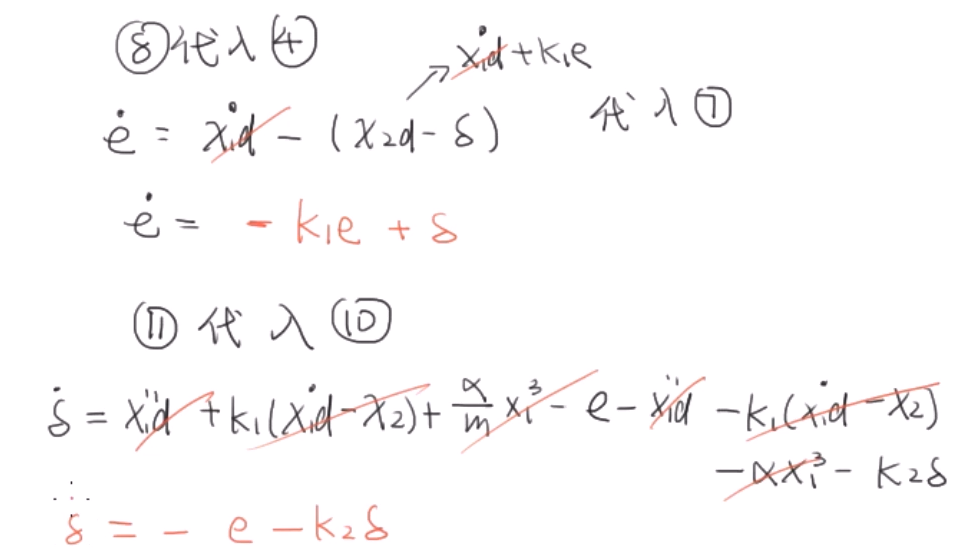 ⑧代入④
ẋ₁d + k₁e
ė = ẋ₁d - (x₂d - δ)
代入⑦
ė = - k₁e + δ
⑪ 代入 ⑩
δ̇ = ẍ₁d + k₁(ẋ₁d - x₂) + α/m x₁³ - e - ẍ₁d - k₁(ẋ₁d - x₂)
- αx₁³ - k₂δ
δ̇ = - e - k₂δ